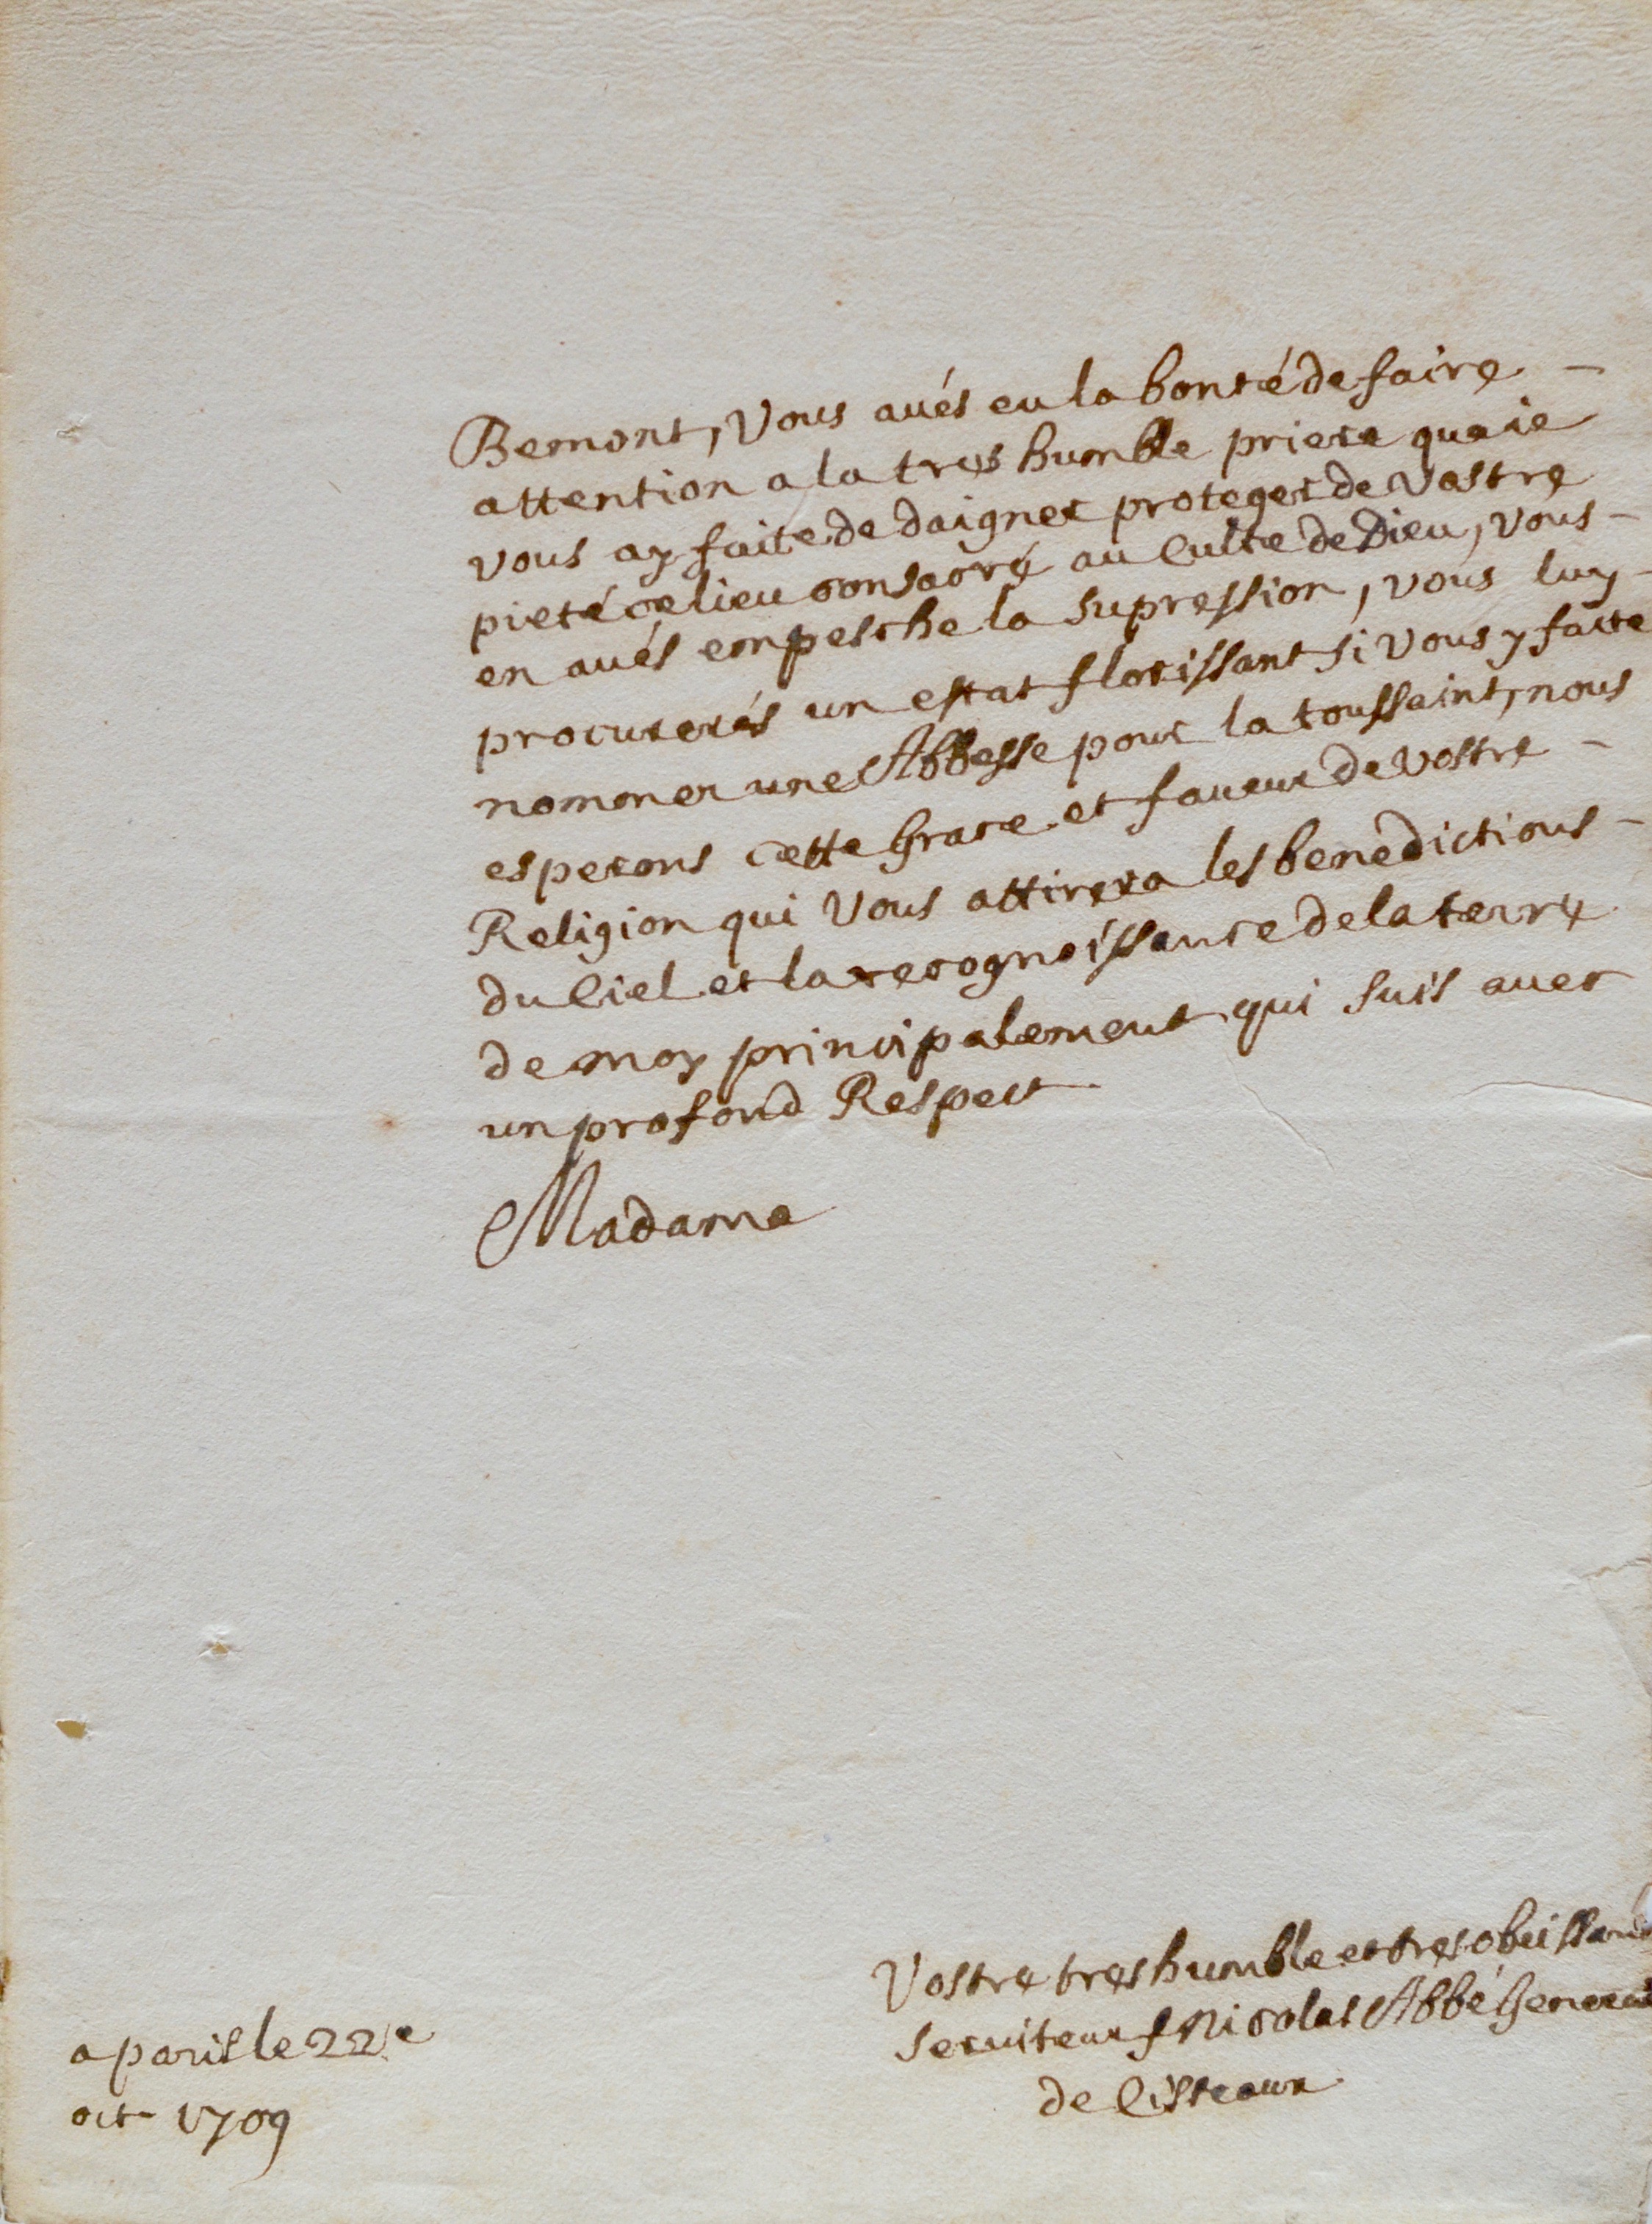 Bemont, Vous aués eu la bonté de faire -
attention a la tres humble priere que ie
vous ay faite de daigner proteger de Vostre
pieté ce lieu consacré au Culte de Dieu, vous -
en aués empesche la supression, vous luy -
procurerés un estat florissant si vous y faite
nommer une Abbesse pour la toussaint, nous
esperons cette Grace et faueur de vostre -
Religion qui Vous attirera les benedictions -
du Ciel et la recognoissance de la terre
de moy principalement qui suis auec
un profond Respect
Madame
Vostre tres humble et tres obeissant
seruiteur f Nicolas Abbé General
de Cisteaux
a paris le 22e
oct 1709